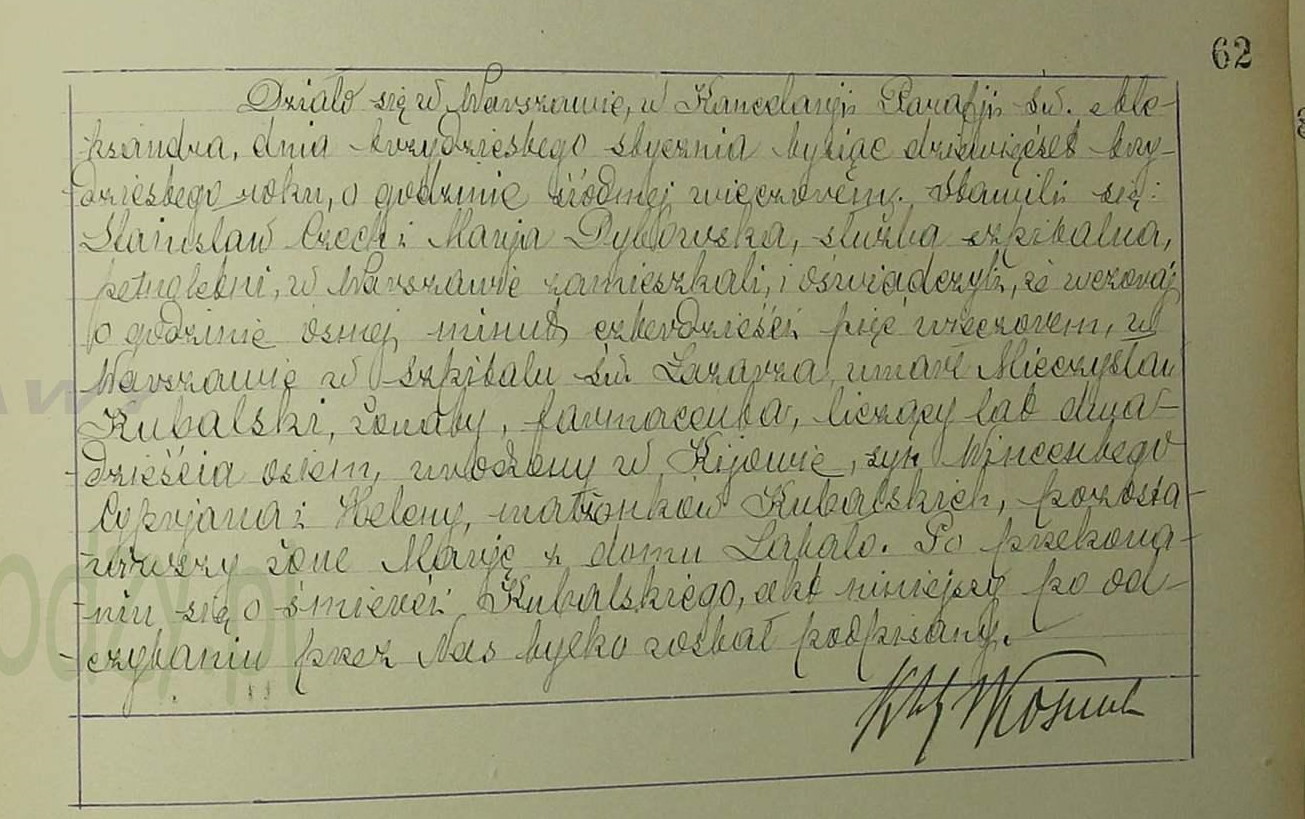 62
Działo się w Warszawie, w Kancelaryji Parafji św. Ale-
ksandra, dnia trzydziestego stycznia tysiąc dziewięćset trzy-
dziestego roku, o godzinie siódmej wieczorem. Stawili się:
Stanisław Czech i Marja Dybowska, służba szpitalna,
pełnoletni, w Warszawie zamieszkali, i oświadczyli, że wczoraj
o godzinie ósmej minut czterdzieści pięć wieczorem, w
Warszawie w szpitalu św. Łazarza umarł Mieczysław
Kubalski, żonaty, farmaceuta, liczący lat dwa-
dzieścia osiem, urodzony w Kijowie, syn Wincentego
Cyprjana i Heleny, małżonków Kubalskich, pozosta-
wiwszy żonę Marję z domu Łapało. Po przekona-
niu się o śmierci Kubalskiego, akt niniejszy po od-
czytaniu przez Nas tylko został podpisany.